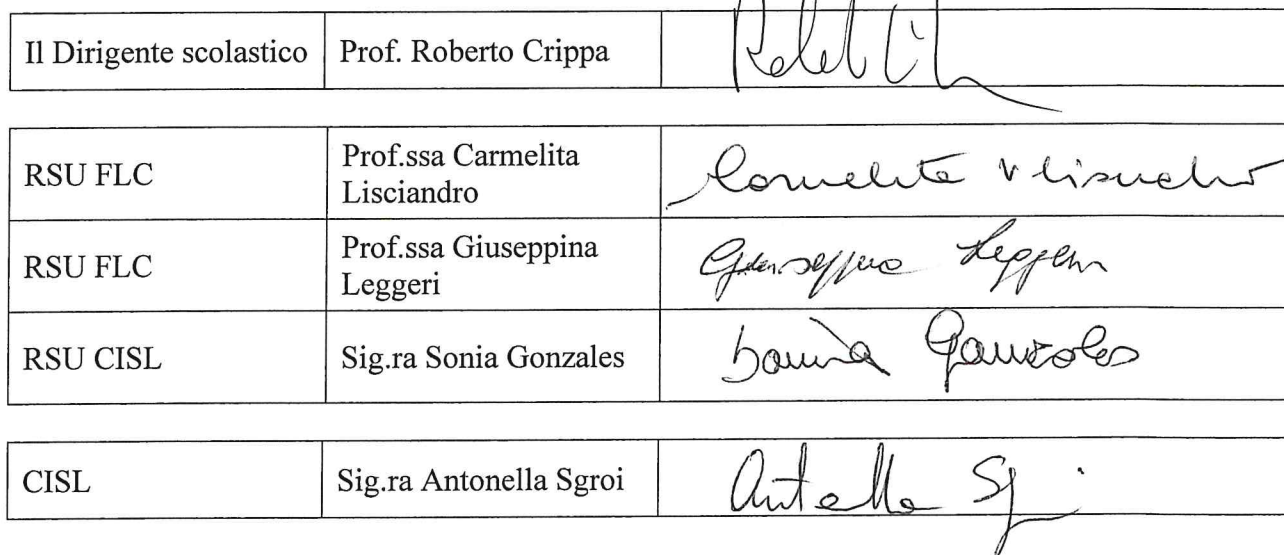 Il Dirigente scolastico Prof. Roberto Crippa
RSU FLC Prof.ssa Carmelita
Lisciandro
Carmelita Lisciandro
RSU FLC Prof.ssa Giuseppina
Leggeri
Giuseppina Leggeri
RSU CISL Sig.ra Sonia Gonzales Sonia Gonzales
CISL Sig.ra Antonella Sgroi Antonella